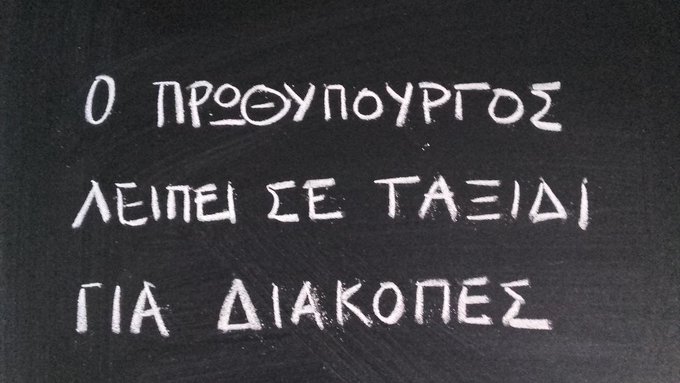 Ο ΠΡΩΘΥΠΟΥΡΓΟΣ
ΛΕΙΠΕΙ ΣΕ ΤΑΞΙΔΙ
ΓΙΑ ΔΙΑΚΟΠΕΣ